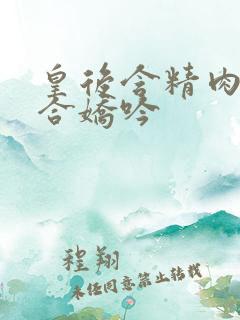 皇后含精肉
合嬌吟
程翔
未任同意禁止转载